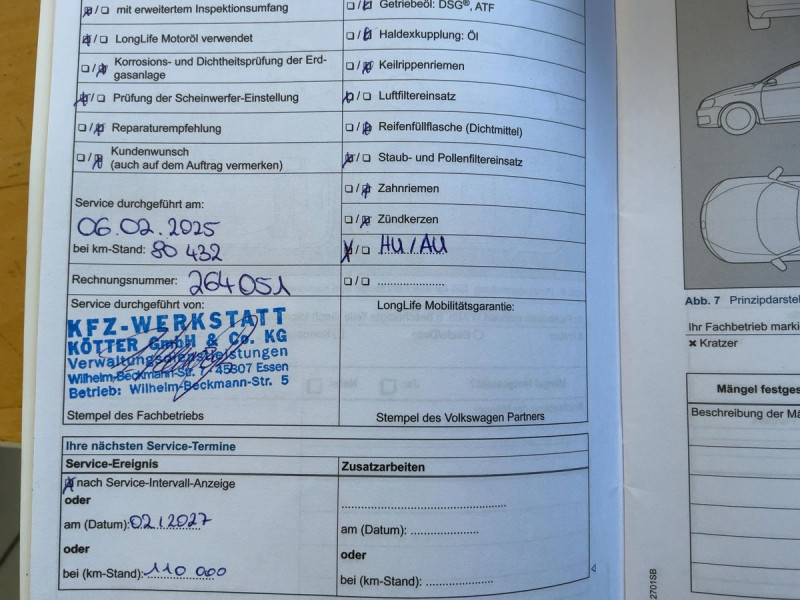 mit erweitertem Inspektionsumfang
LongLife Motoröl verwendet
Korrosions- und Dichtheitsprüfung der Erd-
gasanlage
Prüfung der Scheinwerfer-Einstellung
Reparaturempfehlung
Kundenwunsch
(auch auf dem Auftrag vermerken)
Service durchgeführt am:
06.02.2025
bei km-Stand: 80 432
Rechnungsnummer: 264051
Service durchgeführt von:
KFZ-WERKSTATT
KÖTTER GmbH & Co. KG
Verwaltungsdienstleistungen
Wilhelm-Beckmann-Str. 7, 45307 Essen
Betrieb: Wilhelm-Beckmann-Str. 5
Stempel des Fachbetriebs
Getriebeöl: DSG®, ATF
Haldexkupplung: Öl
Keilrippenriemen
Luftfiltereinsatz
Reifenfüllflasche (Dichtmittel)
Staub- und Pollenfiltereinsatz
Zahnriemen
Zündkerzen
HU/AU
LongLife Mobilitätsgarantie:
Stempel des Volkswagen Partners
Ihre nächsten Service-Termine
Service-Ereignis
nach Service-Intervall-Anzeige
oder
am (Datum): 02/2027
oder
bei (km-Stand): 110 000
Zusatzarbeiten
am (Datum):
oder
bei (km-Stand):
Abb. 7 Prinzipdarstel
Ihr Fachbetrieb marki
✖ Kratzer
Mängel festges
Beschreibung der Mä
2701SB